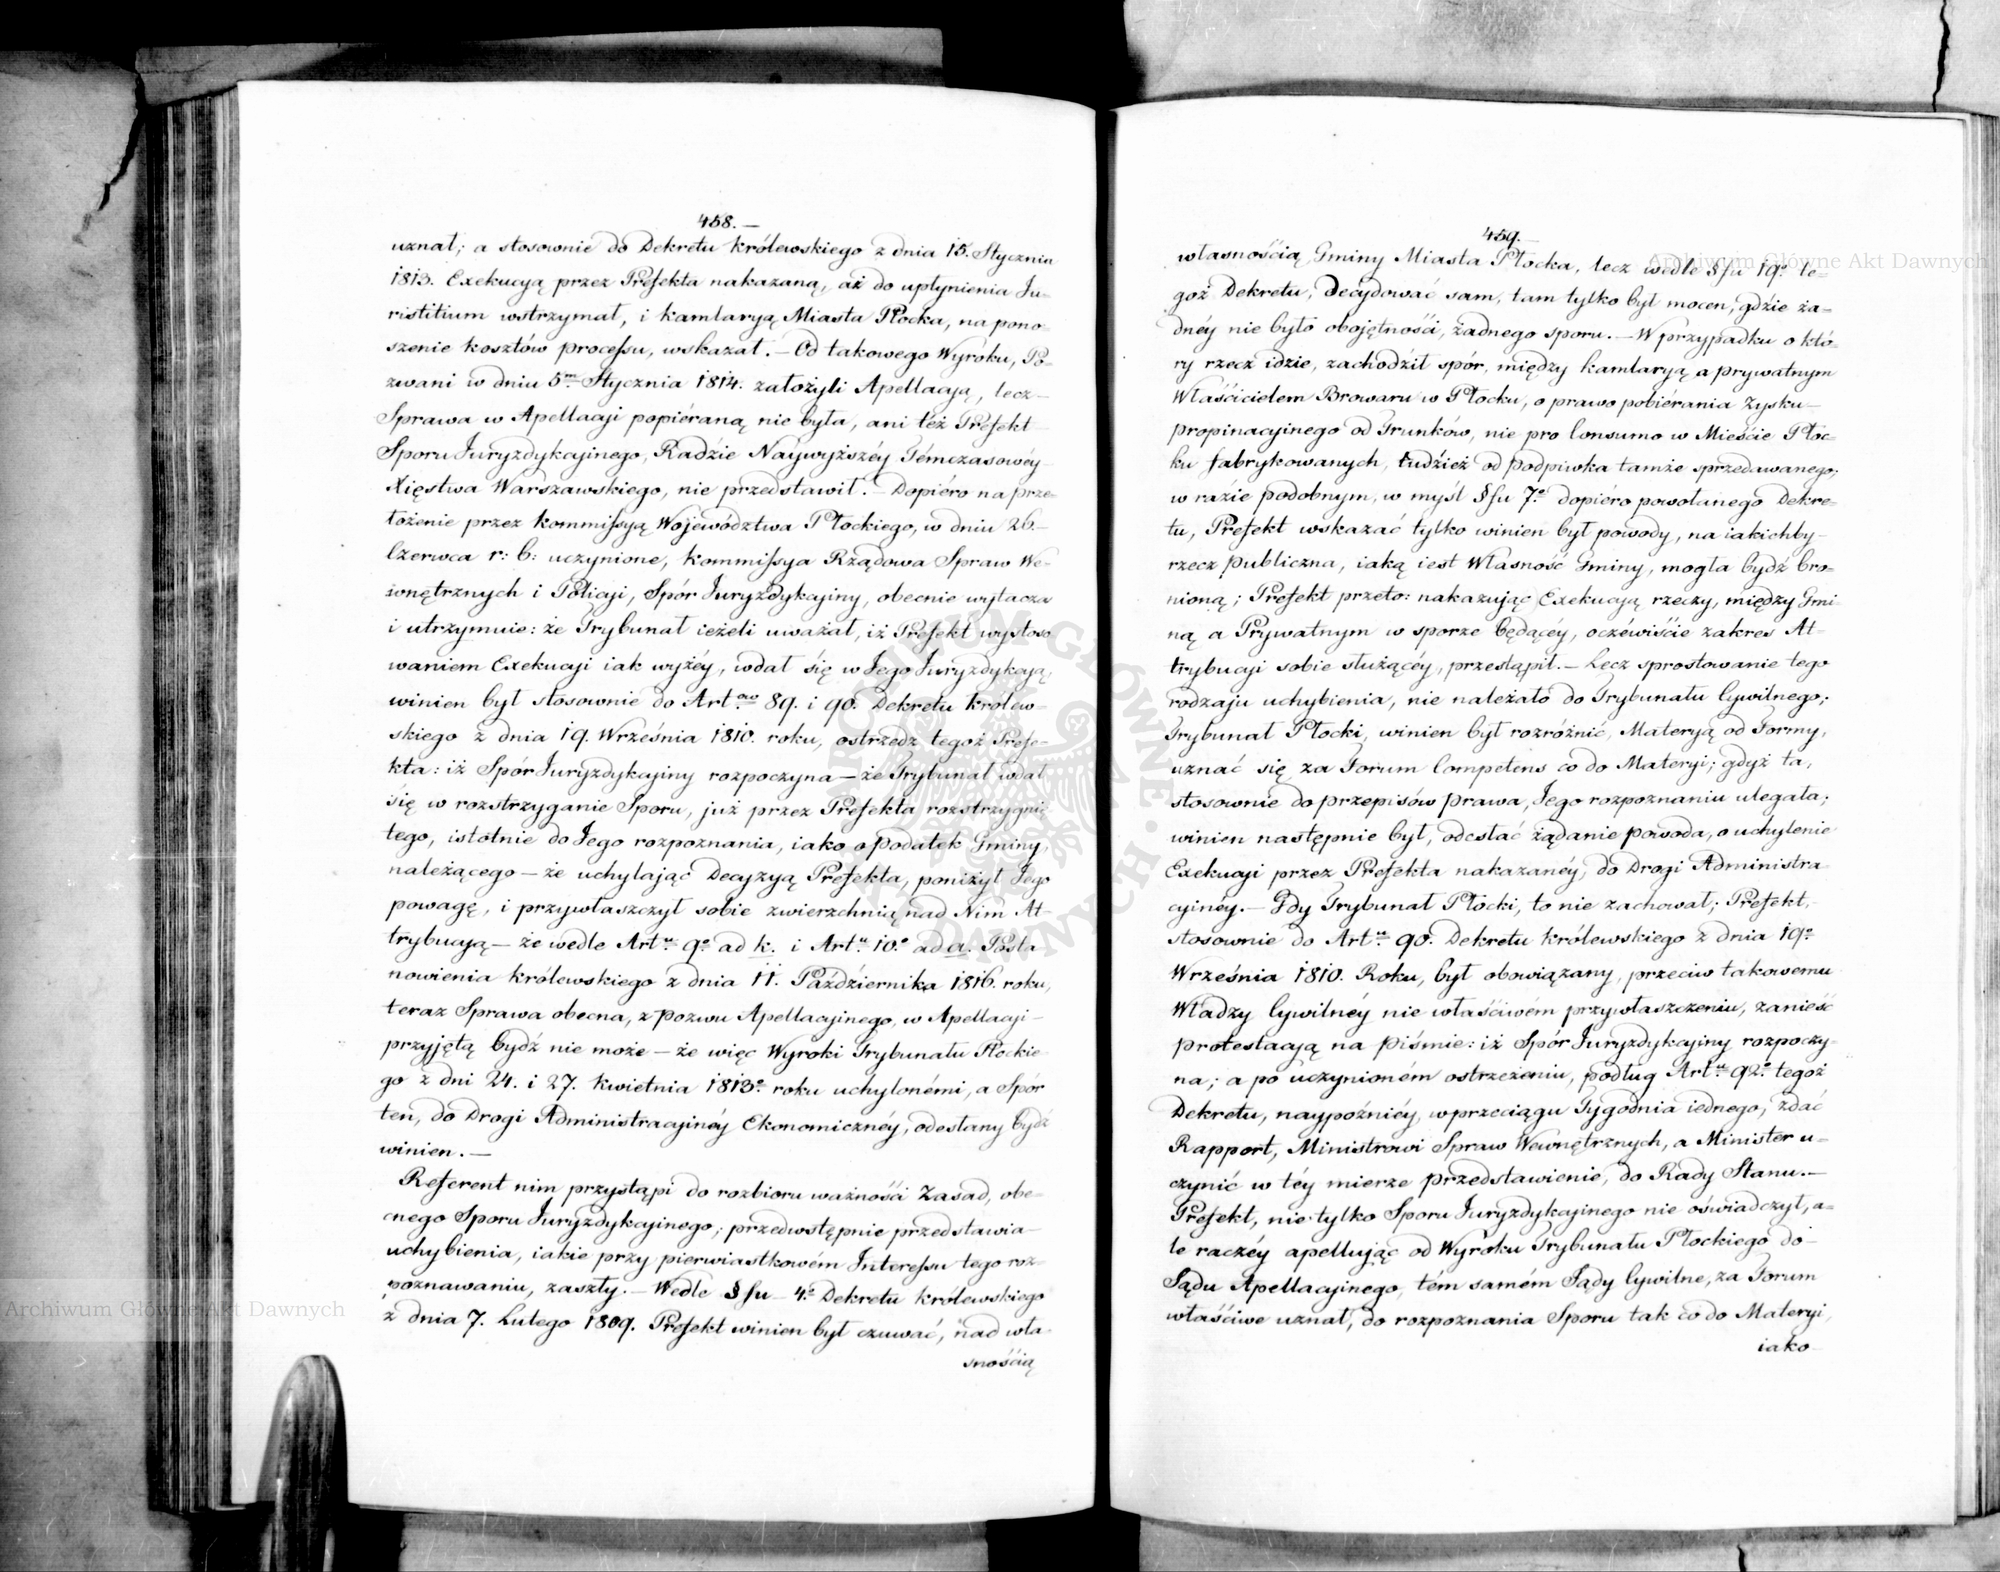 458.—
uznał; a stosownie do Dekretu Królewskiego z dnia 15. Stycznia
1813. Exekucyą przez Prefekta nakazaną, aż do upłynienia Ju-
ristitium wstrzymał, i Kamlaryą Miasta Płocka, na pono-
szenie kosztów processu, wskazał. — Od takowego Wyroku, Po-
zwani w dniu 5m Stycznia 1814. założyli Apellacyą, lecz —
Sprawa w Apellacyi popiéraną nie była, ani też Prefekt
Sporu Juryzdykcyinego, Radzie Naywyższéy Témczasowéy
Xięstwa Warszawskiego, nie przedstawił. — Dopiéro na prze-
łożenie przez Kommissyą Województwa Płockiego, w dniu 26. —
Czerwca r: b: uczynione, Kommissya Rządowa Spraw We-
wnętrznych i Policyi, Spór Juryzdykcyiny, obecnie wytacza
i utrzymuie: że Trybunał ieżeli uważał, iż Prefekt wystoso-
waniem Exekucyi iak wyżéy, wdał się w Jego Juryzdykcyą,
winien był stosownie do Art. 89. i 90. Dekretu Królew-
skiego z dnia 19. Września 1810. roku, ostrzedz tegoż Prefe-
kta: iż Spór Juryzdykcyiny rozpoczyna — że Trybunał wdał
się w rozstrzyganie Sporu, już przez Prefekta rozstrzygnię-
tego, istotnie do Jego rozpoznania, iako o Podatek Gminy,
należącego — że uchylając Decyzyą Prefekta, poniżył Jego
powagę, i przywłaszczył sobie zwierzchnią nad Nim At-
trybucyą — że wedle Artu 9o ad k. i Artu 10.o ad a. Posta-
nowienia Królewskiego z dnia 11. Października 1816. roku,
teraz Sprawa obecna, z pozwu Apellacyinego, w Apellacyi —
przyjętą bydź nie może — że więc Wyroki Trybunału Płockie-
go z dni 24. i 27. Kwietnia 1813o roku uchylonémi, a Spór
ten, do Drogi Administracyinéy Ekonomicznéy, odesłany bydź
winien. —
Referent nim przystąpi do rozbioru ważności Zasad, obe-
cnego Sporu Juryzdykcyinego; przedwstępnie przedstawia —
uchybienia, iakie przy pierwiastkowém Interessu tego roz-
poznawaniu, zaszły. — Wedle §fu 4o Dekretu Królewskiego
z dnia 7. Lutego 1809. Prefekt winien był czuwać, nad wła-
snością
459.
własnością Gminy Miasta Płocka, lecz wedle §fu 19o te-
goż Dekretu, Decydować sam, tam tylko był mocen, gdzie ża-
dnéy nie było obojętności, żadnego sporu. — W przypadku o któ-
ry rzecz idzie, zachodził spór, między Kamlaryą a prywatnym
Właścicielem Browaru w Płocku, o prawo pobiérania Zysku —
propinacyinego od Trunków, nie pro Consumo w Mieście Płoc-
ku fabrykowanych, tudzież od podpiwka tamże sprzedawanego;
w razie podobnym, w myśl §fu 7.o dopiéro powołanego Dekre-
tu, Prefekt wskazać tylko winien był powody, na iakichby —
rzecz publiczna, iaką iest Własność Gminy, mogła bydź bro-
nioną; Prefekt przeto: nakazując Exekucyą rzeczy, między Gmi-
ną a Prywatnym w sporze będącéy, oczéwiście zakres At-
trybucyi sobie służącéy, przestąpił. — Lecz sprostowanie tego
rodzaju uchybienia, nie należało do Trybunału Cywilnego;
Trybunał Płocki, winien był rozróżnić, Materyą od Formy,
uznać się za Forum Competens co do Materyi; gdyż ta,
stosownie do przepisów prawa, Jego rozpoznaniu ulegała;
winien następnie był, odesłać żądanie powoda, o uchylenie
Exekucyi przez Prefekta nakazanéy, do Drogi Administra-
cyinéy. — Gdy Trybunał Płocki, to nie zachował; Prefekt,
stosownie do Artu 90. Dekretu Królewskiego z dnia 19o
Września 1810. Roku, był obowiązany, przeciw takowemu
Władzy Cywilnéy nie właściwém przywłaszczeniu, zanieść
protestacyą na piśmie: iż Spór Juryzdykcyiny rozpoczy-
na; a po uczynioném ostrzeżeniu, podług Artu 92.o tegoż
Dekretu, naypoźniéy, w przeciągu Tygodnia iednego, zdać
Rapport, Ministrowi Spraw Wewnętrznych, a Minister u-
czynić w téy mierze przedstawienie, do Rady Stanu. —
Prefekt, nie tylko Sporu Juryzdykcyinego nie oświadczył, a-
le raczéy apellując od Wyroku Trybunału Płockiego do —
Sądu Apellacyinego, tém samém Sądy Cywilne, za Forum
właściwe uznał, do rozpoznania Sporu tak co do Materyi,
iako
Archiwum Główne Akt Dawnych
Archiwum Główne Akt Dawnych
ARCHIWUM GŁÓWNE AKT DAWNYCH